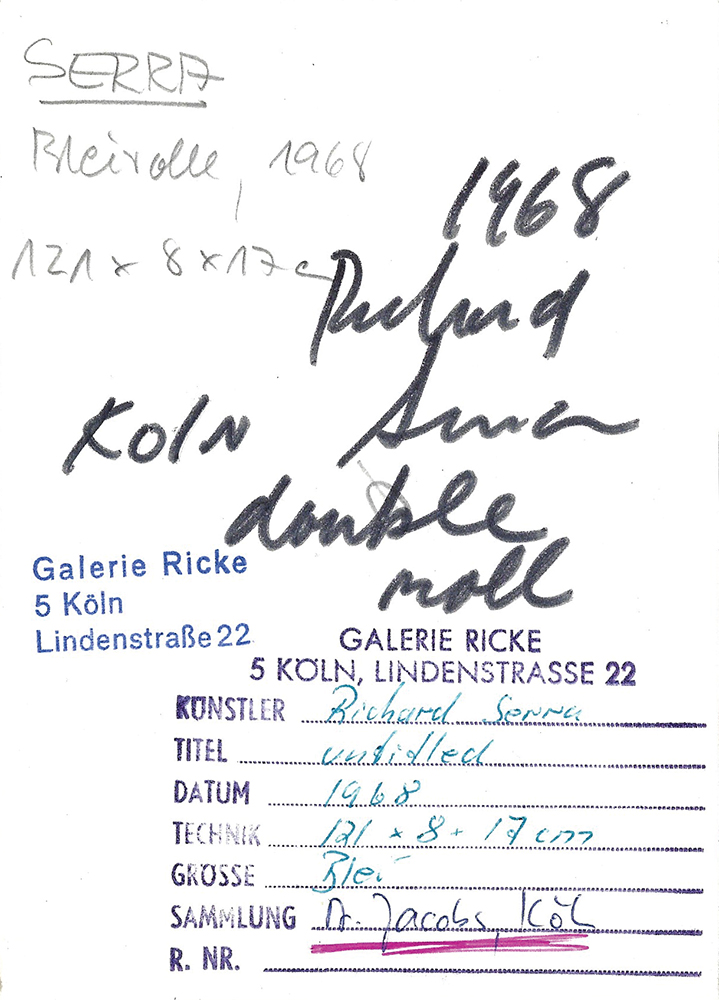 SERRA
Bleirolle, 1968
121 x 8 x 17 c
1968
Richard
Serra
Koln
double
roll
Galerie Ricke
5 Köln
Lindenstraße 22
GALERIE RICKE
5 KÖLN, LINDENSTRASSE 22
KÜNSTLER Richard Serra
TITEL untidled
DATUM 1968
TECHNIK 121 x 8 x 17 cm
GRÖSSE Blei
SAMMLUNG Dr. Jacobs, Köln
R. NR.